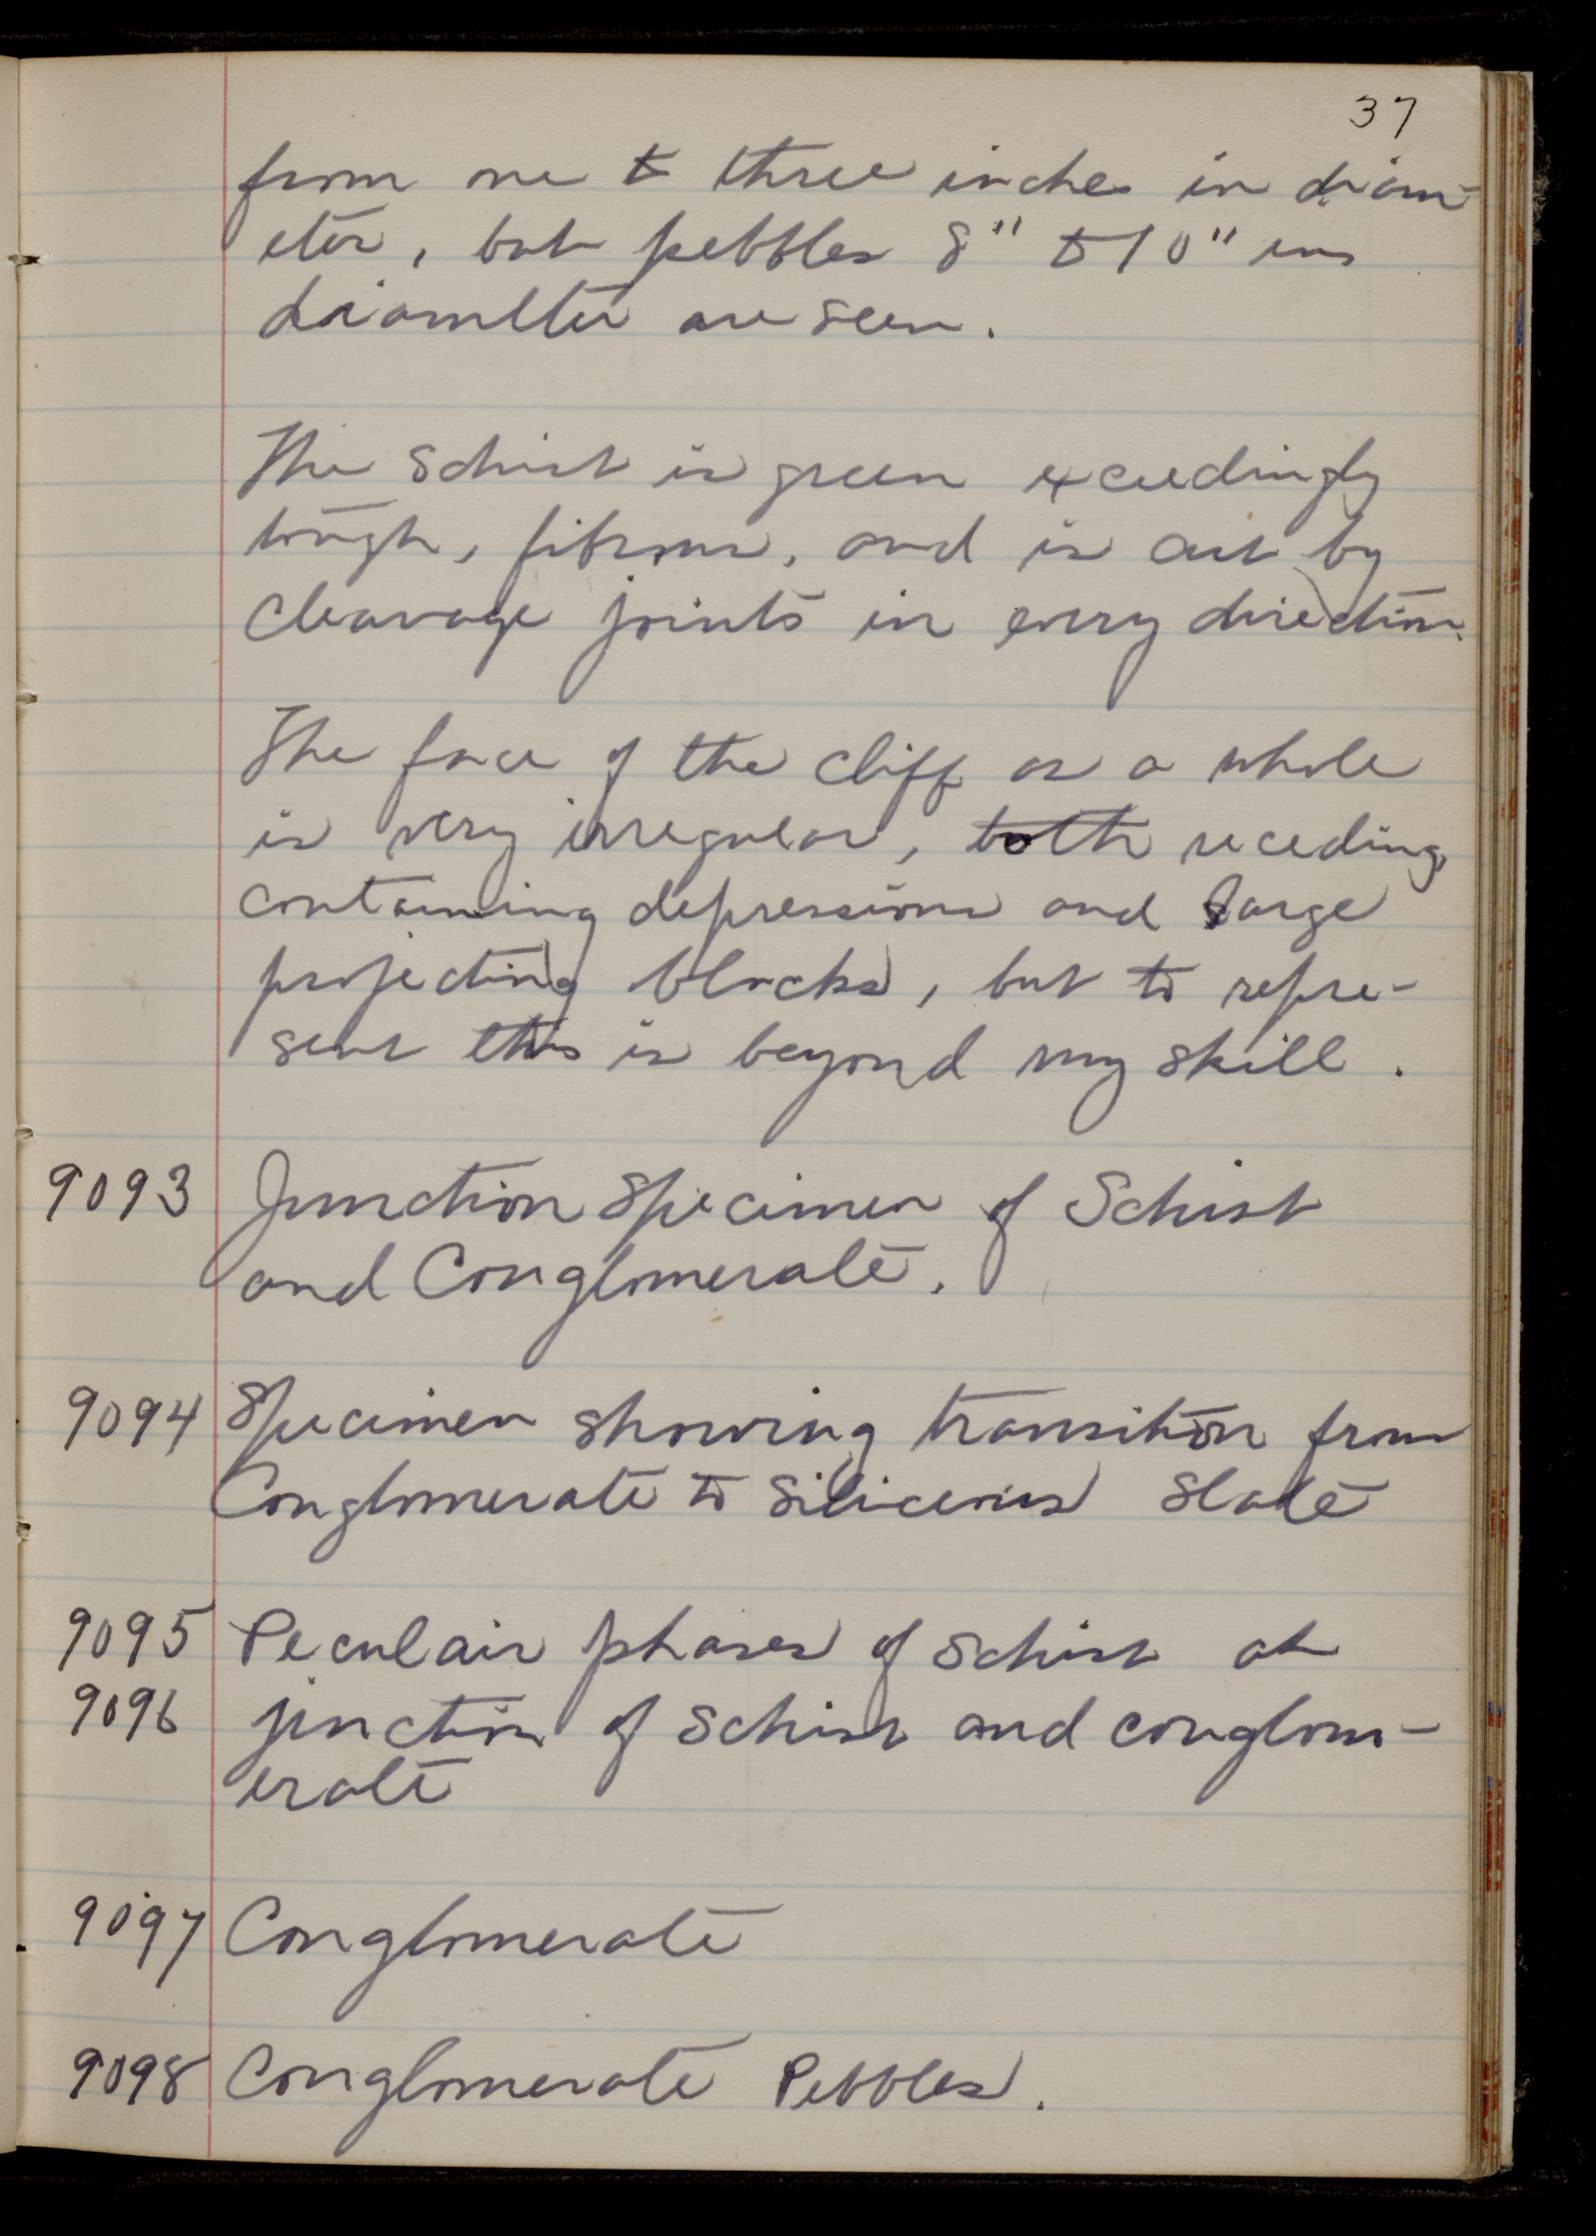 37
from one to three inches in diam-
eter, but pebbles 8" to 10" in
diameter are seen.
The schist is green exceedingly
tough, fibrous, and is cut by
cleavage joints in every direction.
The face of the cliff as a whole
is very irregular, both receding,
containing depressions and large
projecting blocks, but to repre-
sent this is beyond my skill.
9093 Junction Specimen of Schist
and Conglomerate.
9094 Specimen showing transition from
Conglomerate to Siliceous Slate
9095 Peculair phases of Schist at
9096 junction of Schist and conglom-
erate
9097 Conglomerate
9098 Conglomerate Pebbles.